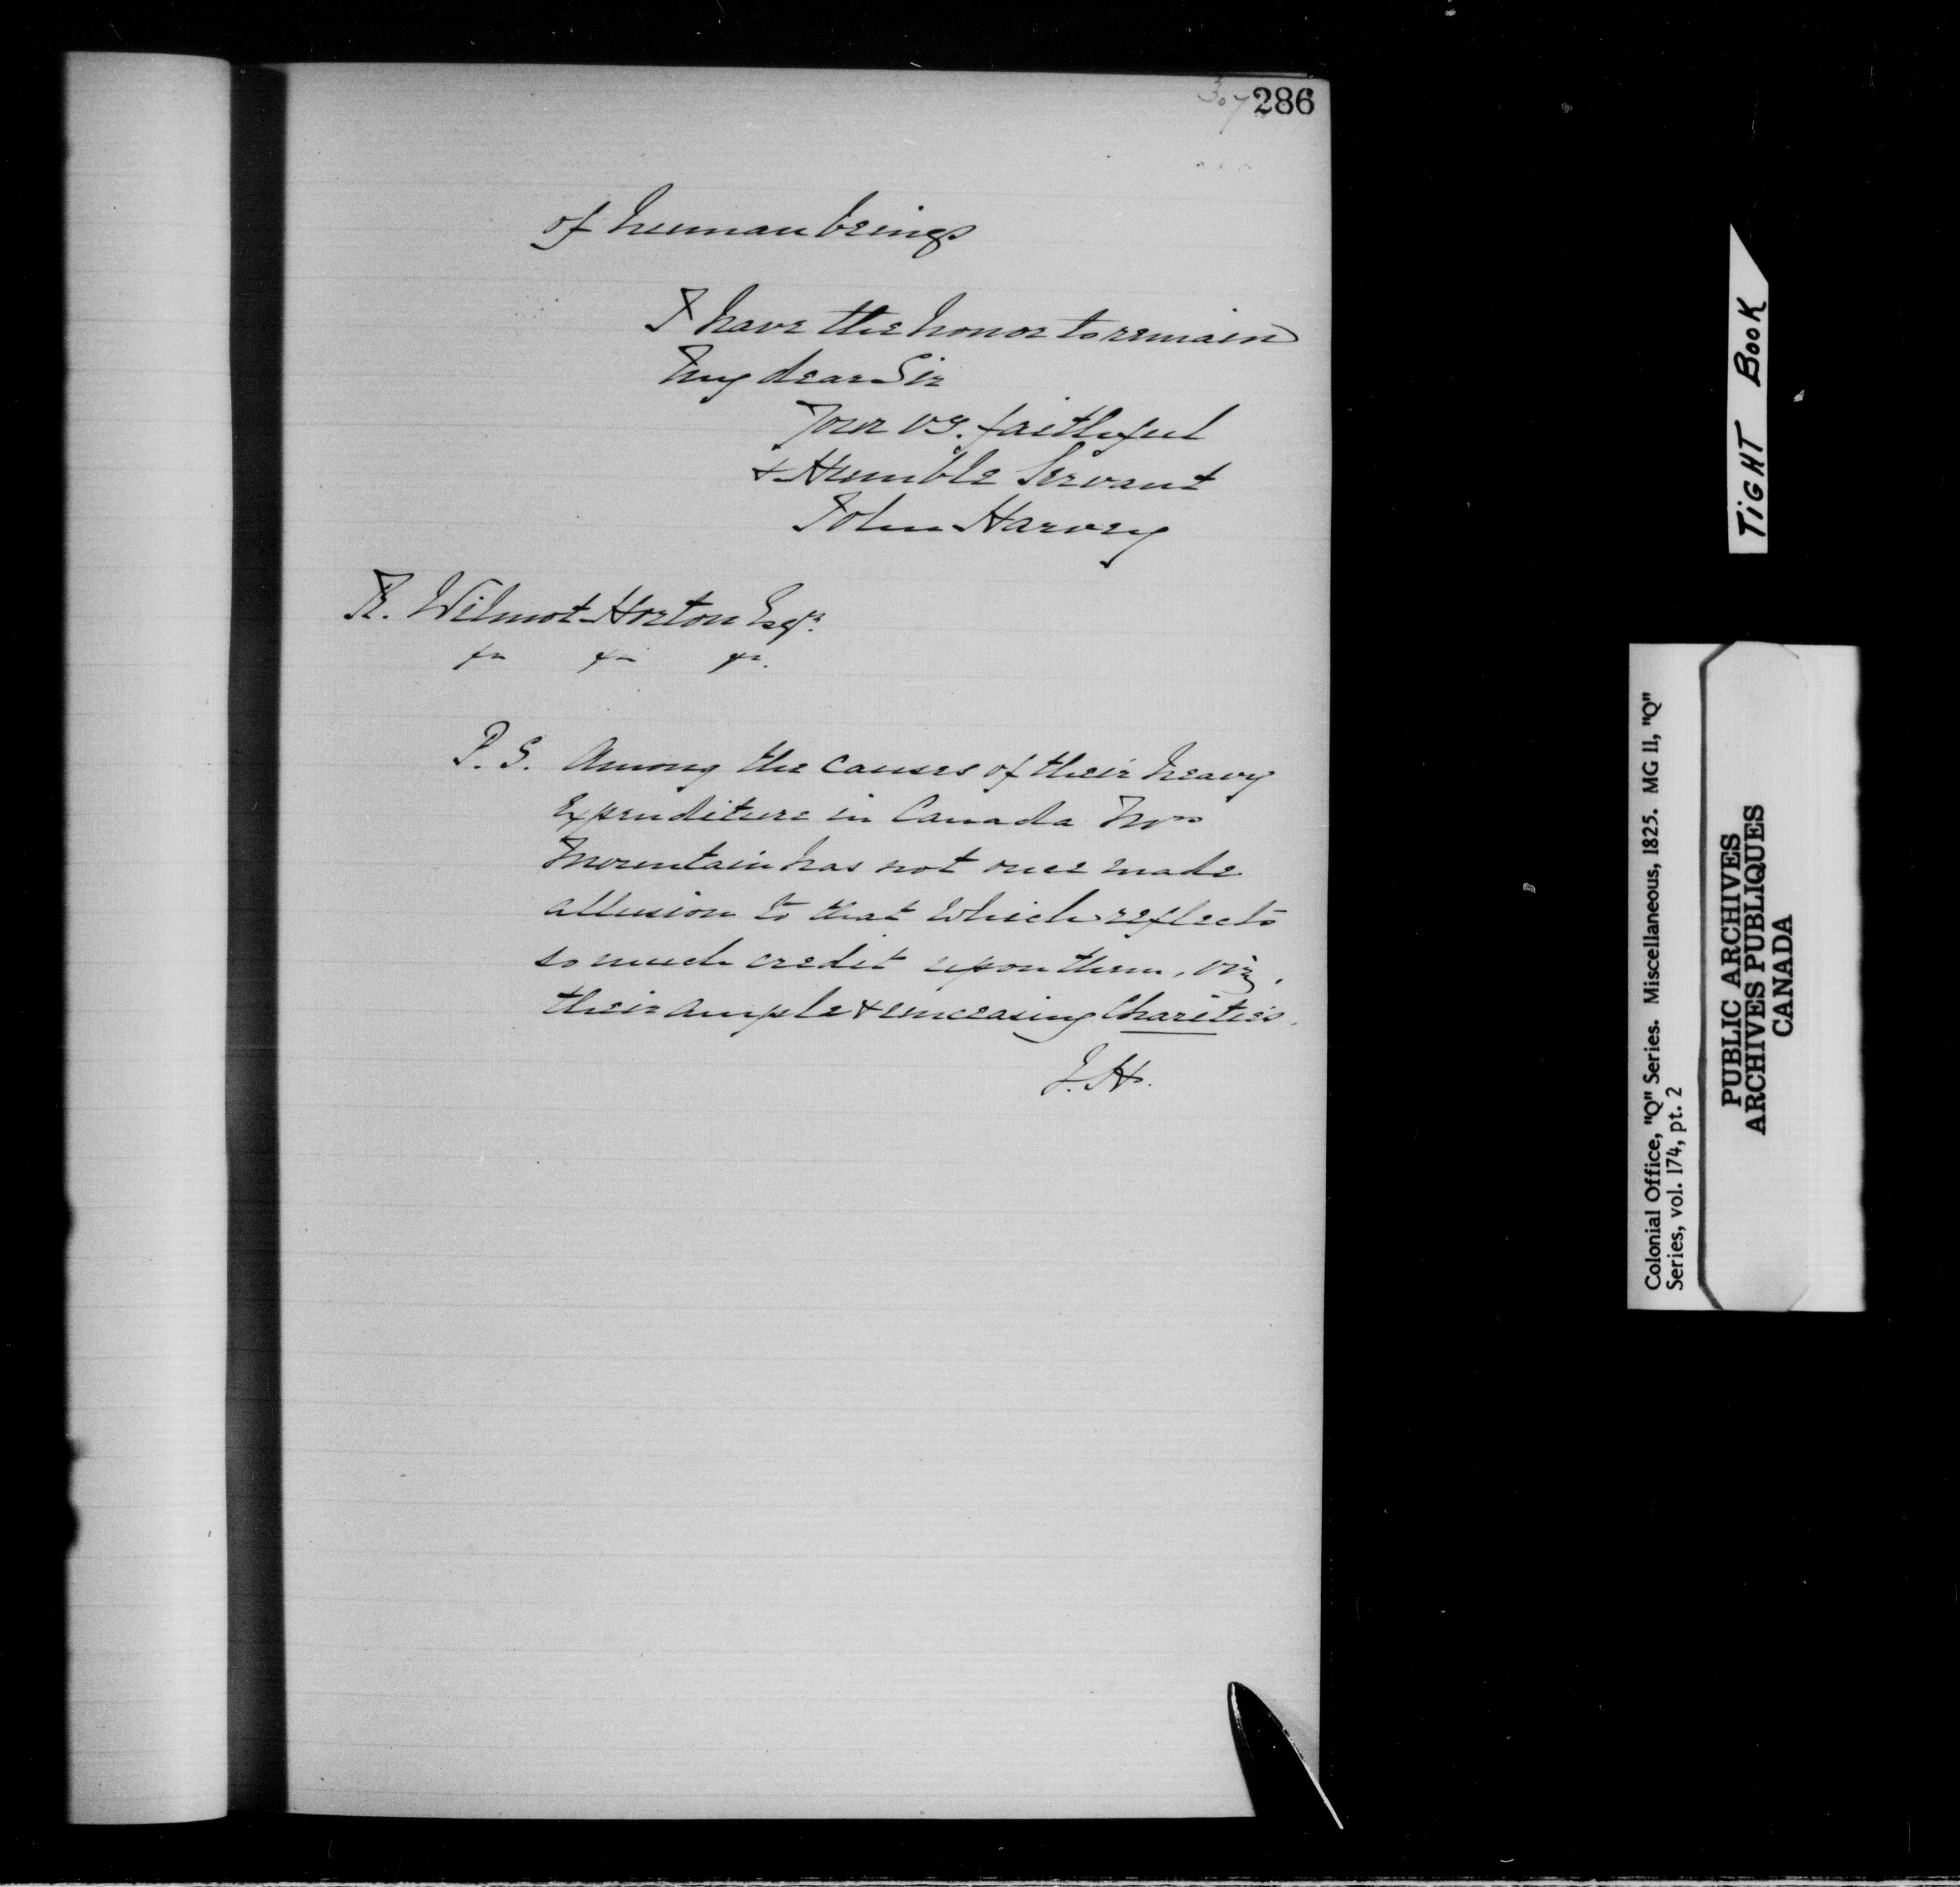 307 286
of human beings
I have the honor to remain
My dear Sir
Your vy. faithful
& Humble Servant
John Harvey
R. Wilmot Horton Esqr.
&c &c &c.
P.S. Among the causes of their heavy
Expenditure in Canada Mrs
Mountain has not once made
allusion to that which reflects
so much credit upon them, viz,
their ample & unceasing Charities.
J.H.
TIGHT BOOK
Colonial Office, "Q" Series. Miscellaneous, 1825. MG 11, "Q"
Series, vol. 174, pt. 2
PUBLIC ARCHIVES
ARCHIVES PUBLIQUES
CANADA